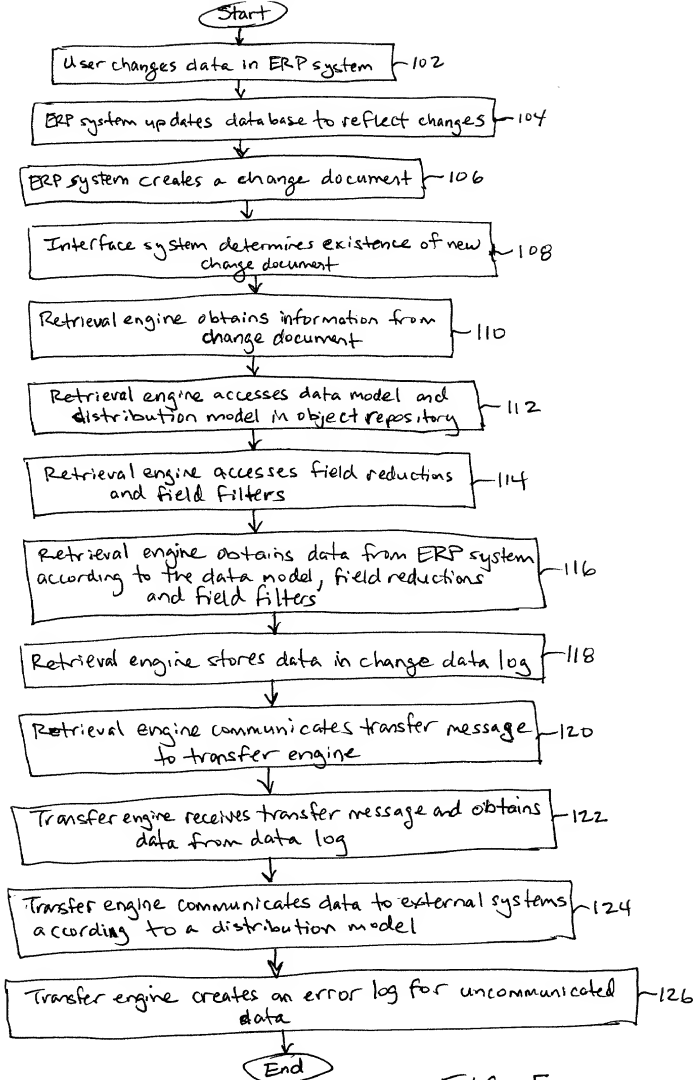 Start
User changes data in ERP system
102
ERP system updates database to reflect changes
104
ERP system creates a change document
106
Interface system determines existence of new
change document
108
Retrieval engine obtains information from
change document
110
Retrieval engine accesses data model and
distribution model in object repository
112
Retrieval engine accesses field reductions
and field filters
114
Retrieval engine obtains data from ERP system
according to the data model, field reductions
and field filters
116
Retrieval engine stores data in change data log
118
Retrieval engine communicates transfer message
to transfer engine
120
Transfer engine receives transfer message and obtains
data from data log
122
Transfer engine communicates data to external systems
according to a distribution model
124
Transfer engine creates an error log for uncommunicated
data
126
End